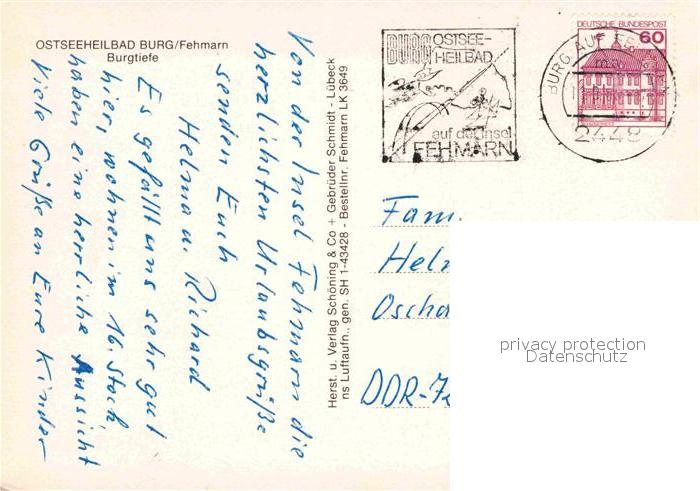 OSTSEEHEILBAD BURG/Fehmarn
Burgtiefe
Von der Insel Fehmarn die
herzlichsten Urlaubsgrüße
senden Euch
Helma u. Richard
Es gefällt uns sehr gut
hier, wohnen im 16. Stock,
haben eine herrliche Aussicht
Viele Grüße an Eure Kinder
Herst. u. Verlag Schöning & Co + Gebrüder Schmidt - Lübeck
ns Luftaufn., gen. SH 1-43428 - Bestellnr. Fehmarn LK 3649
BURG OSTSEE-
HEILBAD
auf der Insel
FEHMARN
BURG AUF
2448
DEUTSCHE BUNDESPOST
60
Fam.
Hel
Oscha
DDR-7
privacy protection
Datenschutz